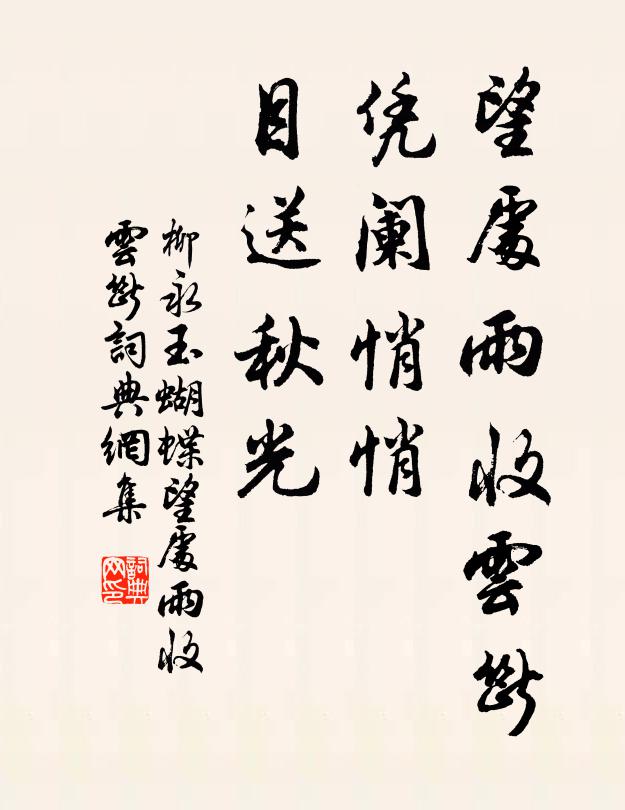 望處雨收雲斷
凭阑悄悄
目送秋光
柳永玉蝴蝶望處雨收
雲斷詞典網集
詞典
网印